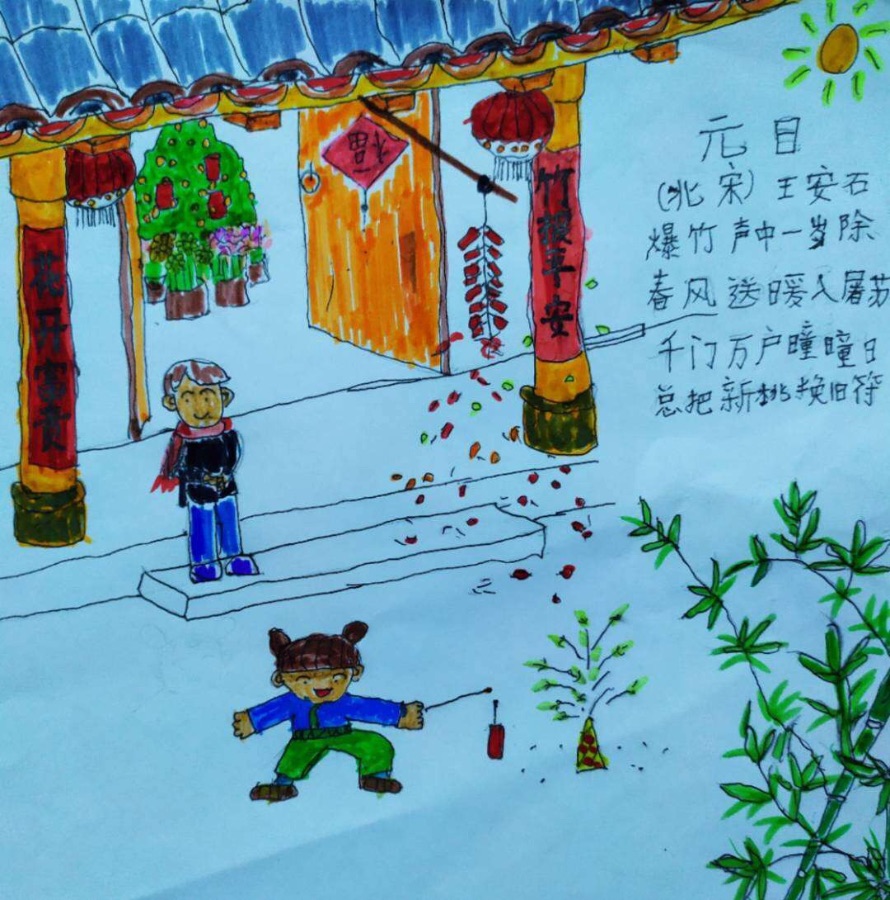 元目
(北宋) 王安石
爆竹声中一岁除
春风送暖入屠苏
千门万户瞳瞳日
总把新桃换旧符
竹报平安
花开富贵
福